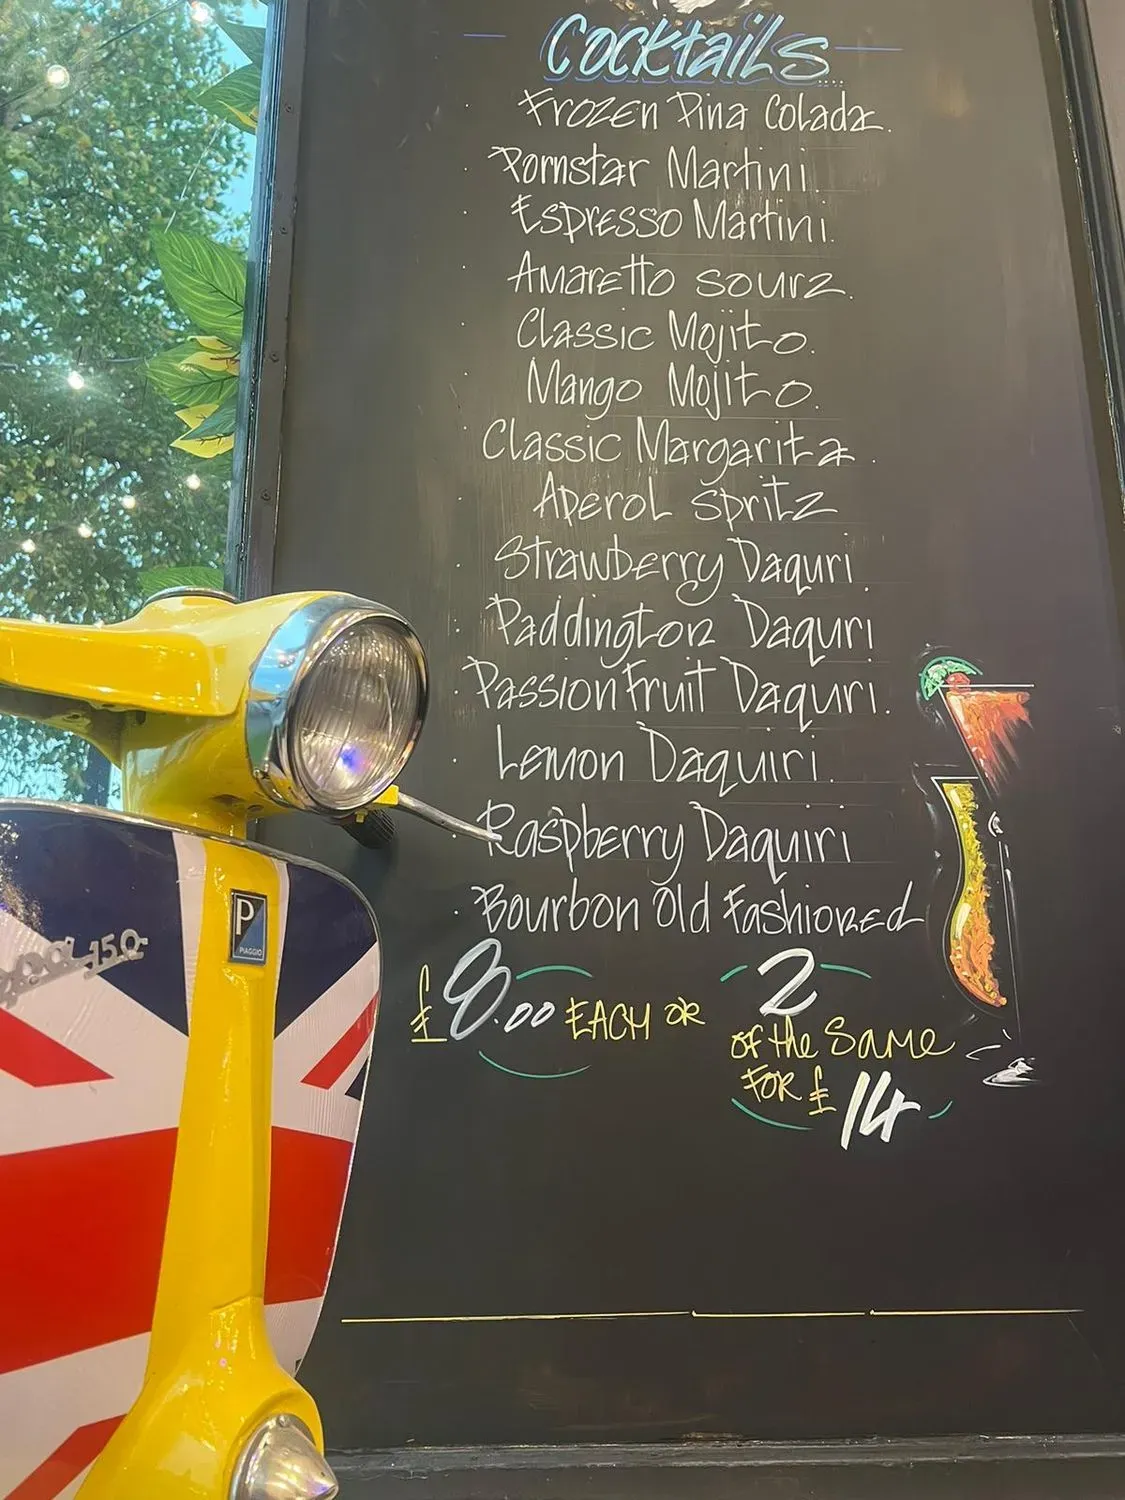 Cocktails....
Frozen Pina Colada.
Pornstar Martini.
Espresso Martini.
Amaretto sourz.
Classic Mojito.
Mango Mojito.
Classic Margarita.
Aperol Spritz
Strawberry Daquri
Paddington Daquri
Passionfruit Daquri.
Lemon Daquiri.
Raspberry Daquiri
Bourbon Old Fashioned
£8.00 EACH OR 2
OF the SAME
FOR £14
P
PIAGGIO
150